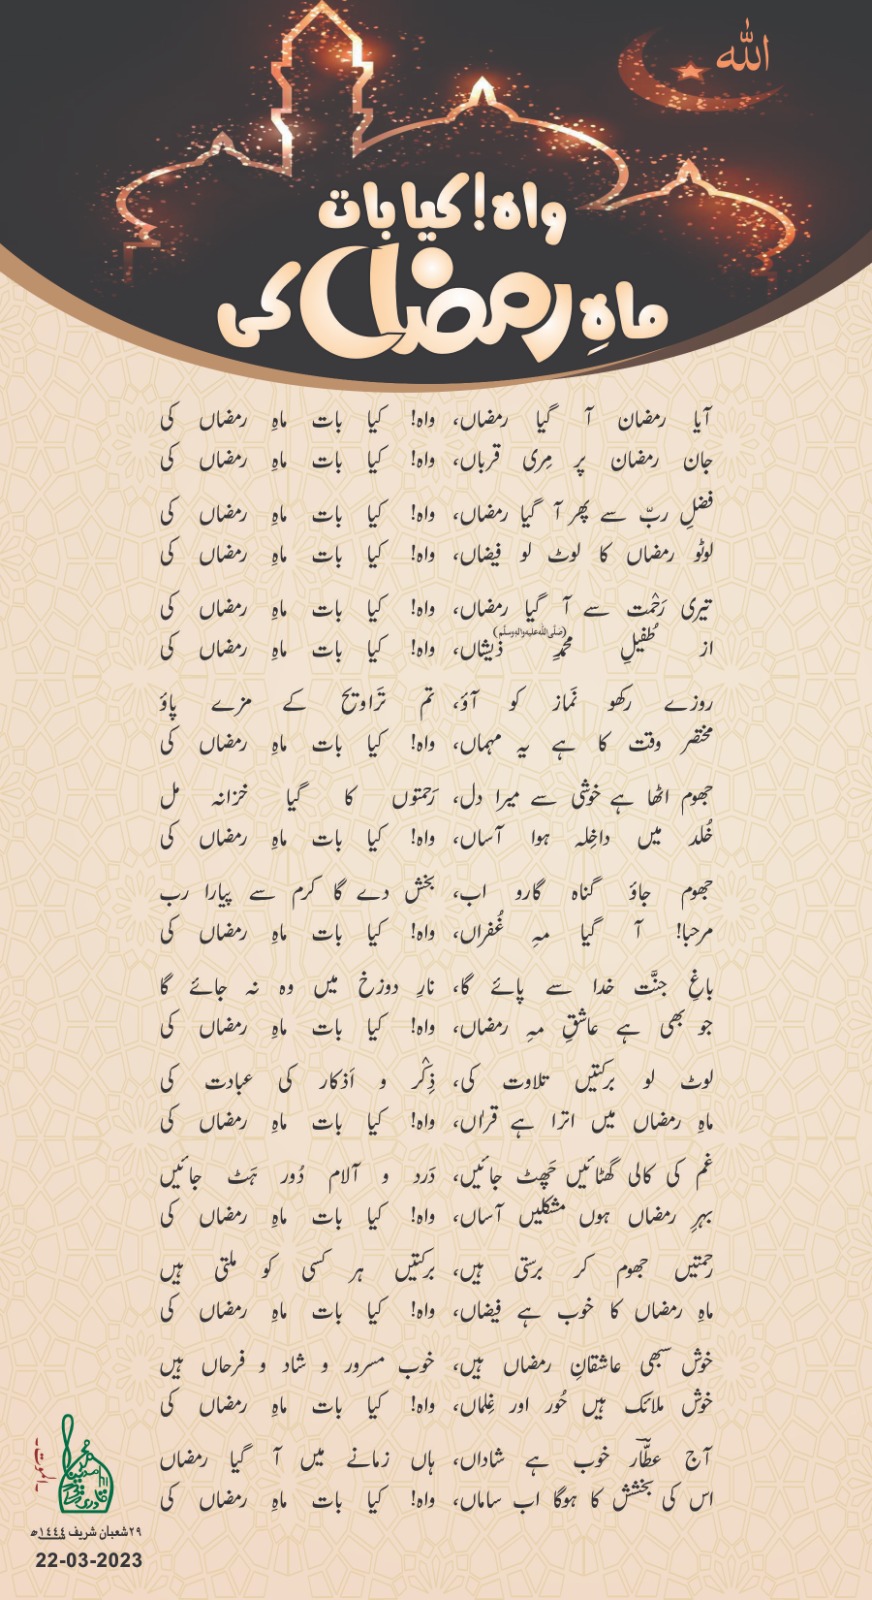 الله
واہ! کیا بات
ماہِ رمضاں کی
آیا رمضان آ گیا رمضاں، واہ! کیا بات ماہِ رمضاں کی
جان رمضان پر مِری قرباں، واہ! کیا بات ماہِ رمضاں کی
فضلِ ربّ سے پھر آ گیا رمضاں، واہ! کیا بات ماہِ رمضاں کی
لوٹو رمضاں کا لوٹ لو فیضاں، واہ! کیا بات ماہِ رمضاں کی
تیری رَحْمت سے آ گیا رمضاں، واہ! کیا بات ماہِ رمضاں کی
از طُفیلِ محمدِ (صلی اللہ علیہ والہ وسلم) ذیشاں، واہ! کیا بات ماہِ رمضاں کی
روزے رکھو نَماز کو آؤ، تم تَراویح کے مزے پاؤ
مختصر وقت کا ہے یہ مہماں، واہ! کیا بات ماہِ رمضاں کی
جھوم اٹھا ہے خوشی سے میرا دل، رَحمتوں کا گیا خزانہ مل
خُلد میں داخِلہ ہوا آساں، واہ! کیا بات ماہِ رمضاں کی
جھوم جاؤ گناہ گارو اب، بخش دے گا کرم سے پیارا رب
مرحبا! آ گیا مہِ غُفراں، واہ! کیا بات ماہِ رمضاں کی
باغِ جنَّت خدا سے پائے گا، نارِ دوزخ میں وہ نہ جائے گا
جو بھی ہے عاشقِ مہِ رمضاں، واہ! کیا بات ماہِ رمضاں کی
لوٹ لو برکتیں تلاوت کی، ذِکْر و اَذکار کی عبادت کی
ماہِ رمضاں میں اترا ہے قراٰں، واہ! کیا بات ماہِ رمضاں کی
غم کی کالی گھٹائیں چَھٹ جائیں، دَرد و آلام دُور ہَٹ جائیں
بہرِ رمضاں ہوں مشکلیں آساں، واہ! کیا بات ماہِ رمضاں کی
رحمتیں جھوم کر برستی ہیں، برکتیں ہر کسی کو ملتی ہیں
ماہِ رمضاں کا خوب ہے فیضاں، واہ! کیا بات ماہِ رمضاں کی
خوش سبھی عاشقانِ رمضاں ہیں، خوب مسرور و شاد و فرحاں ہیں
خوش ملائک ہیں حُور اور غِلماں، واہ! کیا بات ماہِ رمضاں کی
آج عطّاؔر خوب ہے شاداں، ہاں زمانے میں آ گیا رمضاں
اس کی بخشش کا ہوگا اب ساماں، واہ! کیا بات ماہِ رمضاں کی
۲۹ شعبان شریف ١٤٤٤ھ
22-03-2023